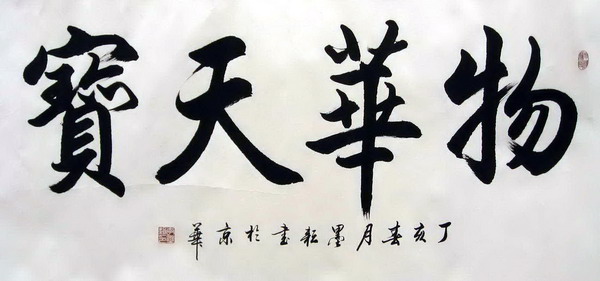 物華天寶
丁亥春月墨耘書於京華